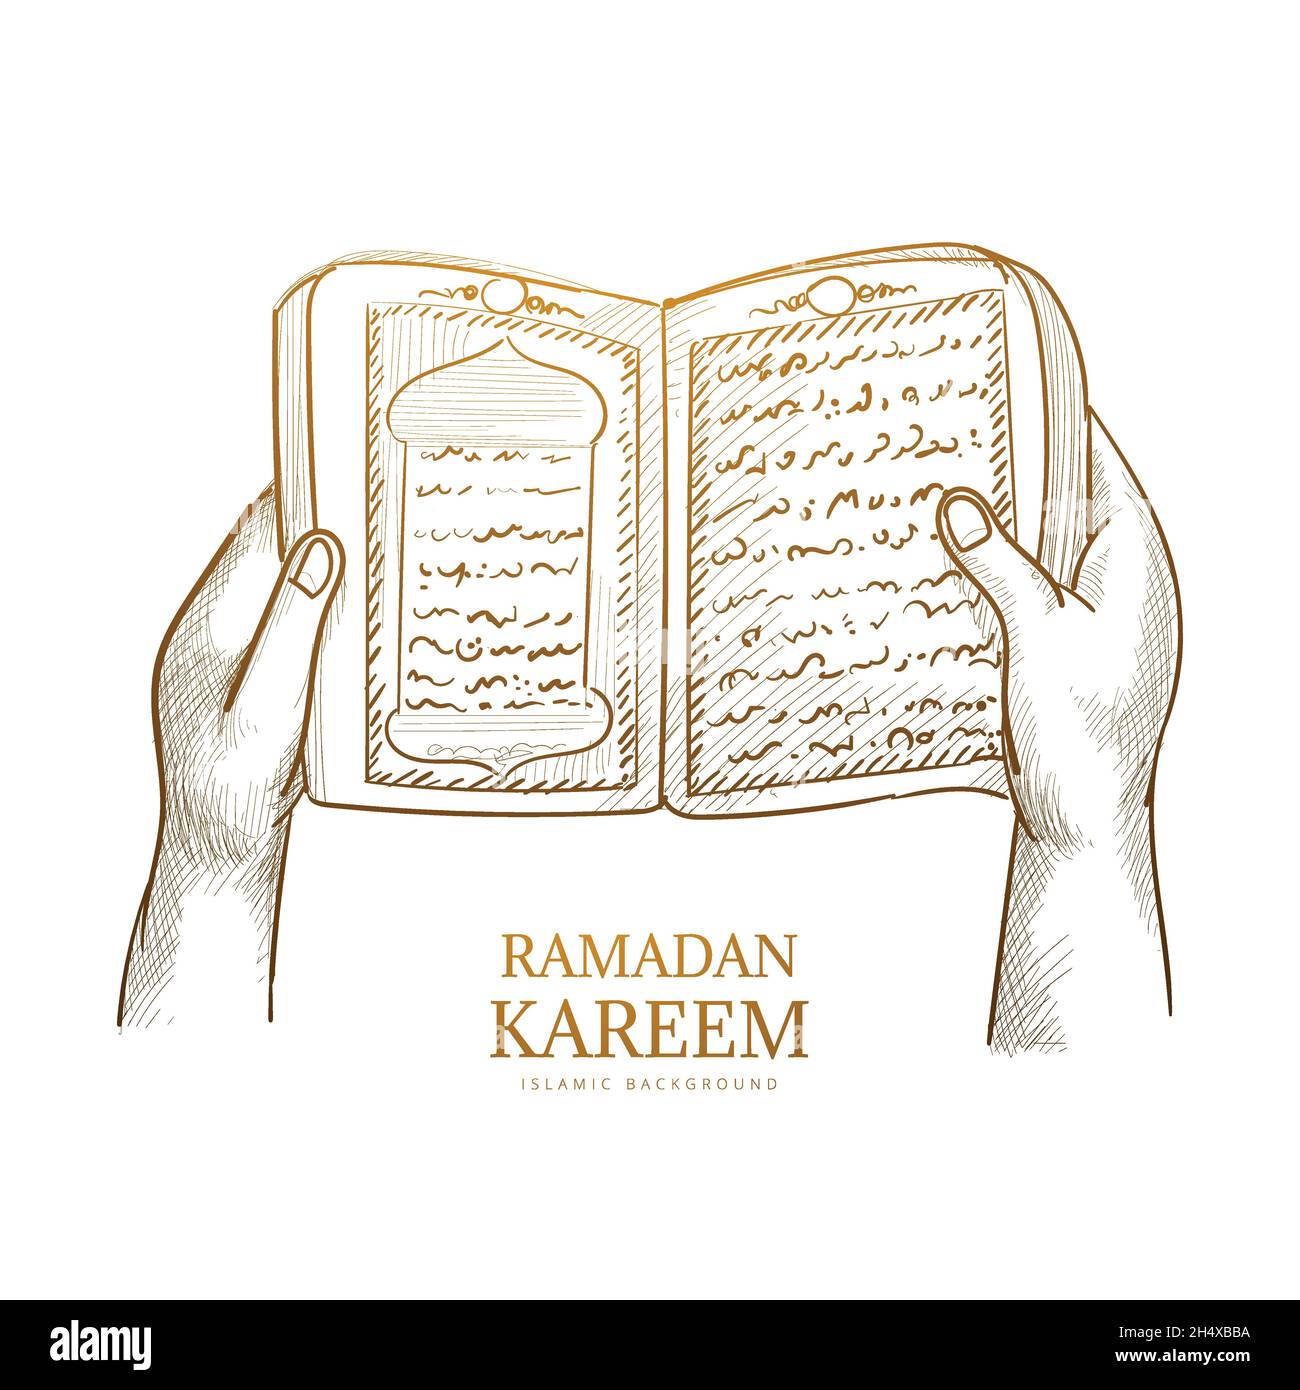 RAMADAN
KAREEM
ISLAMIC BACKGROUND
alamy
Image ID: 2H4XBBA
www.alamy.com